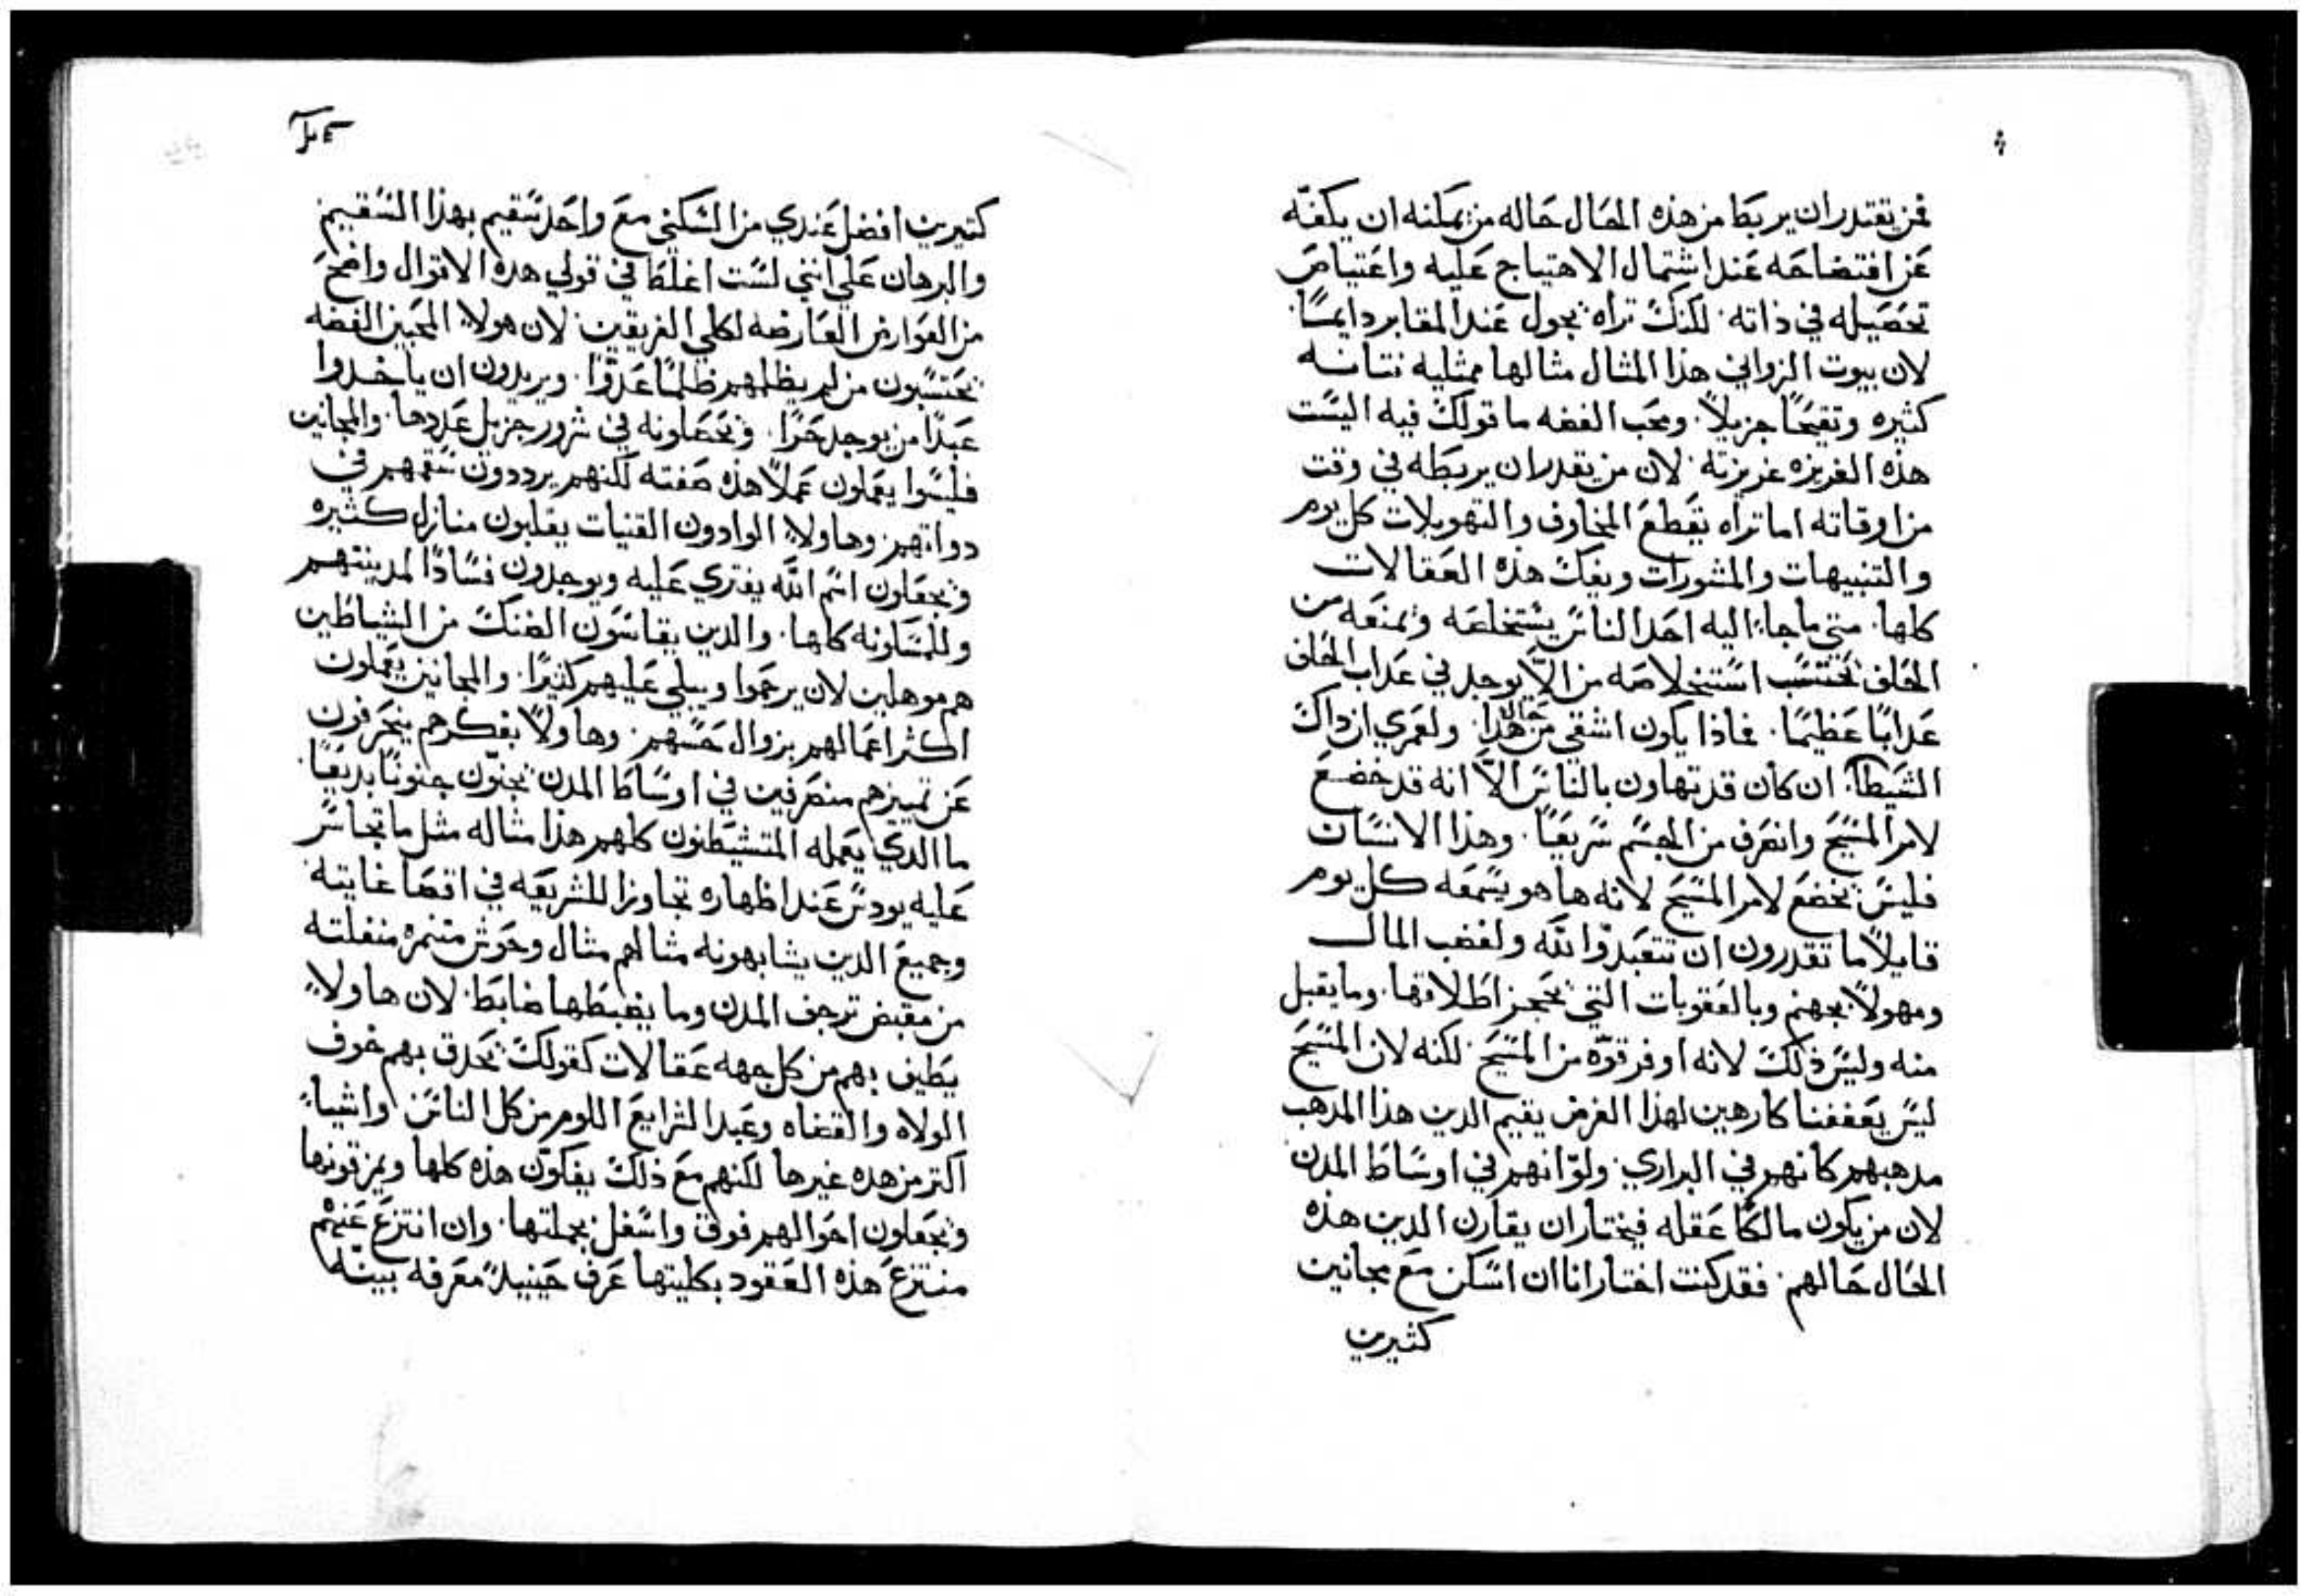 فمن يقتدر ان يربط من هذه الحال حاله من يمكنه ان يكفّه
عن افتضاحه عند اشتمال الاهتياج عليه واعتياص
تحصيله في ذاته. لكنك تراه يجول عند المقابر دايمًا.
لان بيوت الزواني هذا المثال مثالها ممتليه نتانه
كثيره وتقيحًا جزيلاً. ومحب الفضه ما قولك فيه اليست
هذه الغريزه غريزته. لان من يقدر ان يربطه في وقت
من اوقاته اما تراه يقطع المخاوف والتهويلات كل يوم
والتنبيهات والمشورات ويفك هذه العقالات
كلها. متي ما جاء اليه احد الناس يستخلعه ويمنعه من
الخلف يحتسب استخلاصه من الاّ يوجد في عداب الخلف
عدابًا عظيمًا. فماذا يكون اشقي من هذا حالا. ولعمري ان داك
الشيطان ان كان قد تهاون بالناس الاّ انه قد خضع
لامر المسيح وانصرف من الجسم سريعًا. وهذا الانسان
فليس يخضع لامر المسيح لانه ها هو يسمعه كل يوم
قايلاً ما تقدرون ان تتعبدوا لله ولفضب المال
ومهولاً بجهنم وبالعقوبات التي يحجز اطلاقها. وما يقبل
منه وليس ذلك لانه اوفر قوّه من المسيح. لكنه لان المسيح
ليس يعففنا كارهين لهذا الغرض يقيم الدين هذا المدهب
مدهبهم كانهم في البراري. ولو انهم في اوساط المدن
لان من يكون مالكًا عقله فيختار ان يقارن الدين هذه
الحال حالهم. فقد كنت اختار انا ان اسكن مع مجانين
كثيرين
كتيرين افضل عندي من السكني مع واحد سقيم بهذا السقيم
والبرهان علي انني لست اغلط في قولي هذه الاقوال واضح
من العوارض العارضه لكلي الفريقين. لان هولاء المحبين الفضه
يحتسبون من لم يظلمهم ظلمًا عدوًّا. ويريدون ان ياخدوا
عبدًا من يوجد حرًا. ويحصلونه في شرور جزيل عددها. والمجانين
فليسوا يعملون عملاً هذه صفته لكنهم يرددون سقمهم في
دواتهم. وهاولاء الوادون القنيات يقلبون منازل كثيره
ويجعلون اسم الله يفتري عليه ويوجدون فسادًا لمدينتهم
وللمسكونه كلها. والدين يقاسون الضنك من الشياطين
هم موهلين لان يرحموا ويبكي عليهم كتيرًا. والمجانين يعملون
اكثر اعمالهم بزوال حسهم. وهاولا بفكرهم ينحرفون
عن تمييزهم منصرفين في اوساط المدن يجنون جنونًا بديعًا.
ما الدي يعمله المتشيطنون كلهم هذا مثاله مثل ما تجاسر
عليه يودس عند اظهاره تجاوزا للشريعه في اقصا غايته
وجميع الدين يشابهونه مثالهم مثال وحوش متنمره منفلته
من مقبض ترجف المدن وما يضبطها ضابط. لان هاولاء
يطيف بهم من كل جهه عقالات كقولك يحدق بهم خوف
الولاه والقضاه وعبد الشرايع اللوم من كل الناس واشياء
اكتر من هده غيرها لكنهم مع ذلك يفكون هذه كلها ويمزقونها
ويجعلون احوالهم فوق واسفل بجملتها. وان انتزع عنهم
منتزع هذه العقود بكليتها عرف حينيدٍ معرفه بينه